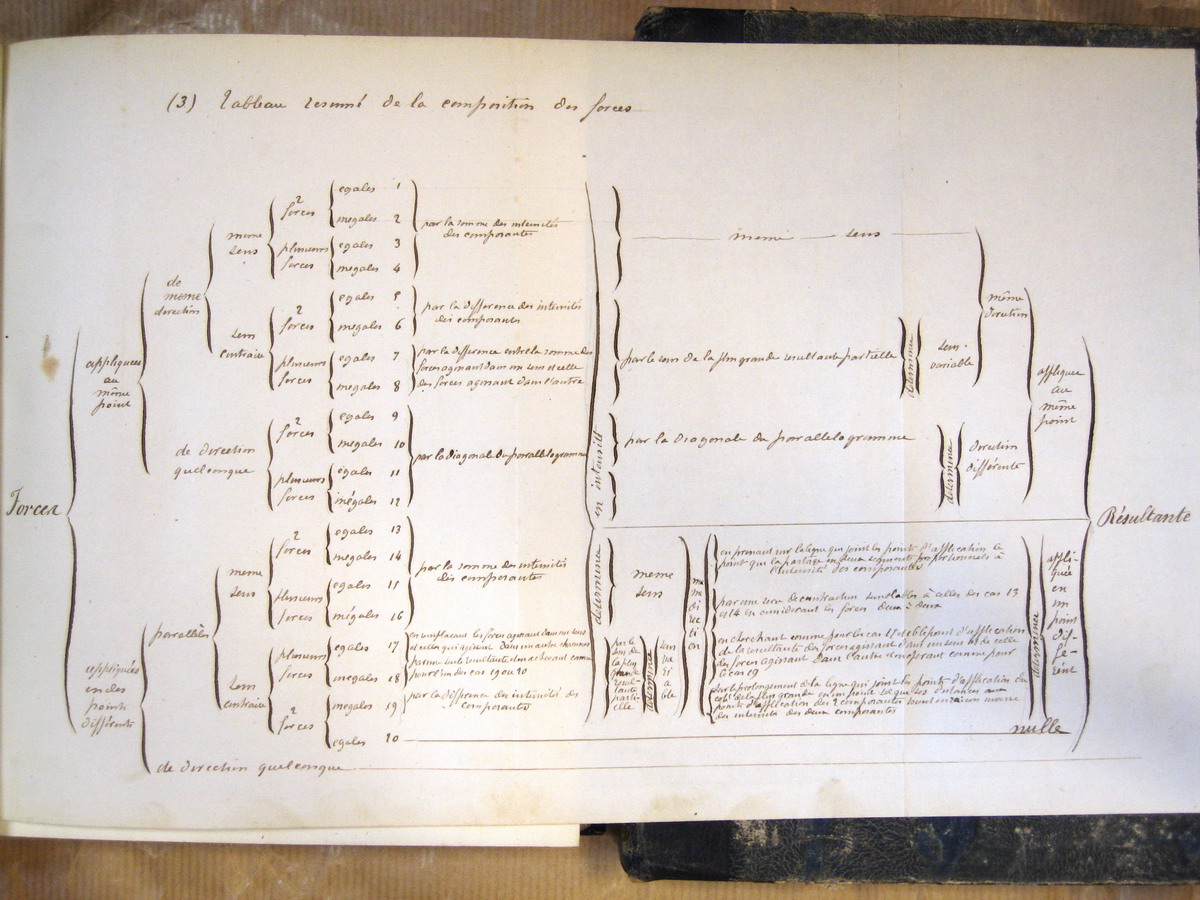 (3) Tableau resumé de la composition des forces
Forces
appliquées
au
même
point
de
meme
direction
meme
sens
2
forces
egales 1
inegales 2
plusieurs
forces
egales 3
inegales 4
par la somme des intensités
des composantes
sens
contraire
2
forces
egales 5
inegales 6
par la difference des intensités
des composantes
plusieurs
forces
egales 7
inegales 8
par la difference entre la somme des
forces agissant dans un sens et celle
des forces agissant dans l'autre
de direction
quelconque
2
forces
egales 9
inegales 10
plusieurs
forces
egales 11
inégales 12
par la diagonale du parallelogramme
appliquées
en des
points
différents
parallèles
meme
sens
2
forces
egales 13
inegales 14
plusieurs
forces
egales 15
inégales 16
par la somme des intensités
des composantes
sens
contraire
plusieurs
forces
egales 17
inegales 18
en remplacant les forces agissant dans un sens
et celles qui agissent dans un autre chacune
par une seule resultante et en achevant comme
pour l'un des cas 19 ou 20
2
forces
inegales 19
par la difference des intensités des
composantes
egales 20
nulle
de direction quelconque
determinée en intensité
meme sens
par le sens de la plus grande resultante partielle
determiné
sens
variable
même
direction
par la diagonale du parallelogramme
determinée
direction
différente
appliquée
au
même
point
meme
sens
par le
sens de
la plus
grande
resul-
tante
parti-
elle
determiné
sens
va
ri
a
ble
me
me
di
rec
ti
on
en prenant sur la ligne qui joint les points d'application le
point qui la partage en deux segments proportionnels à
l'intensité des composantes
par une serie de construction semblables à celles des cas 13
et 14 en considerant les forces deux à deux
en cherchant comme pour le cas 15 et 16 le point d'application
de la resultante des forces agissant dans un sens et de celle
des forces agissant dans l'autre et en operant comme pour
le cas 19
sur le prolongement de la ligne qui joint les points d'application du
coté de la plus grande en un point tel que ses distances aux
points d'application des 2 composantes soient en raison inverse
des intensités des deux composantes
determinée
appli-
quée
en
un
point
dif-
fé-
rent
Résultante